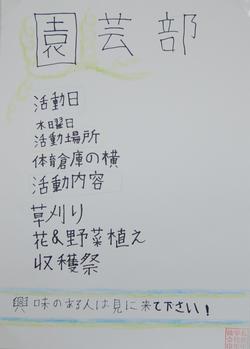 園芸部
活動日
木曜日
活動場所
体育倉庫の横
活動内容
草刈り
花&野菜植え
収穫祭
興味のある人は見に来て下さい!